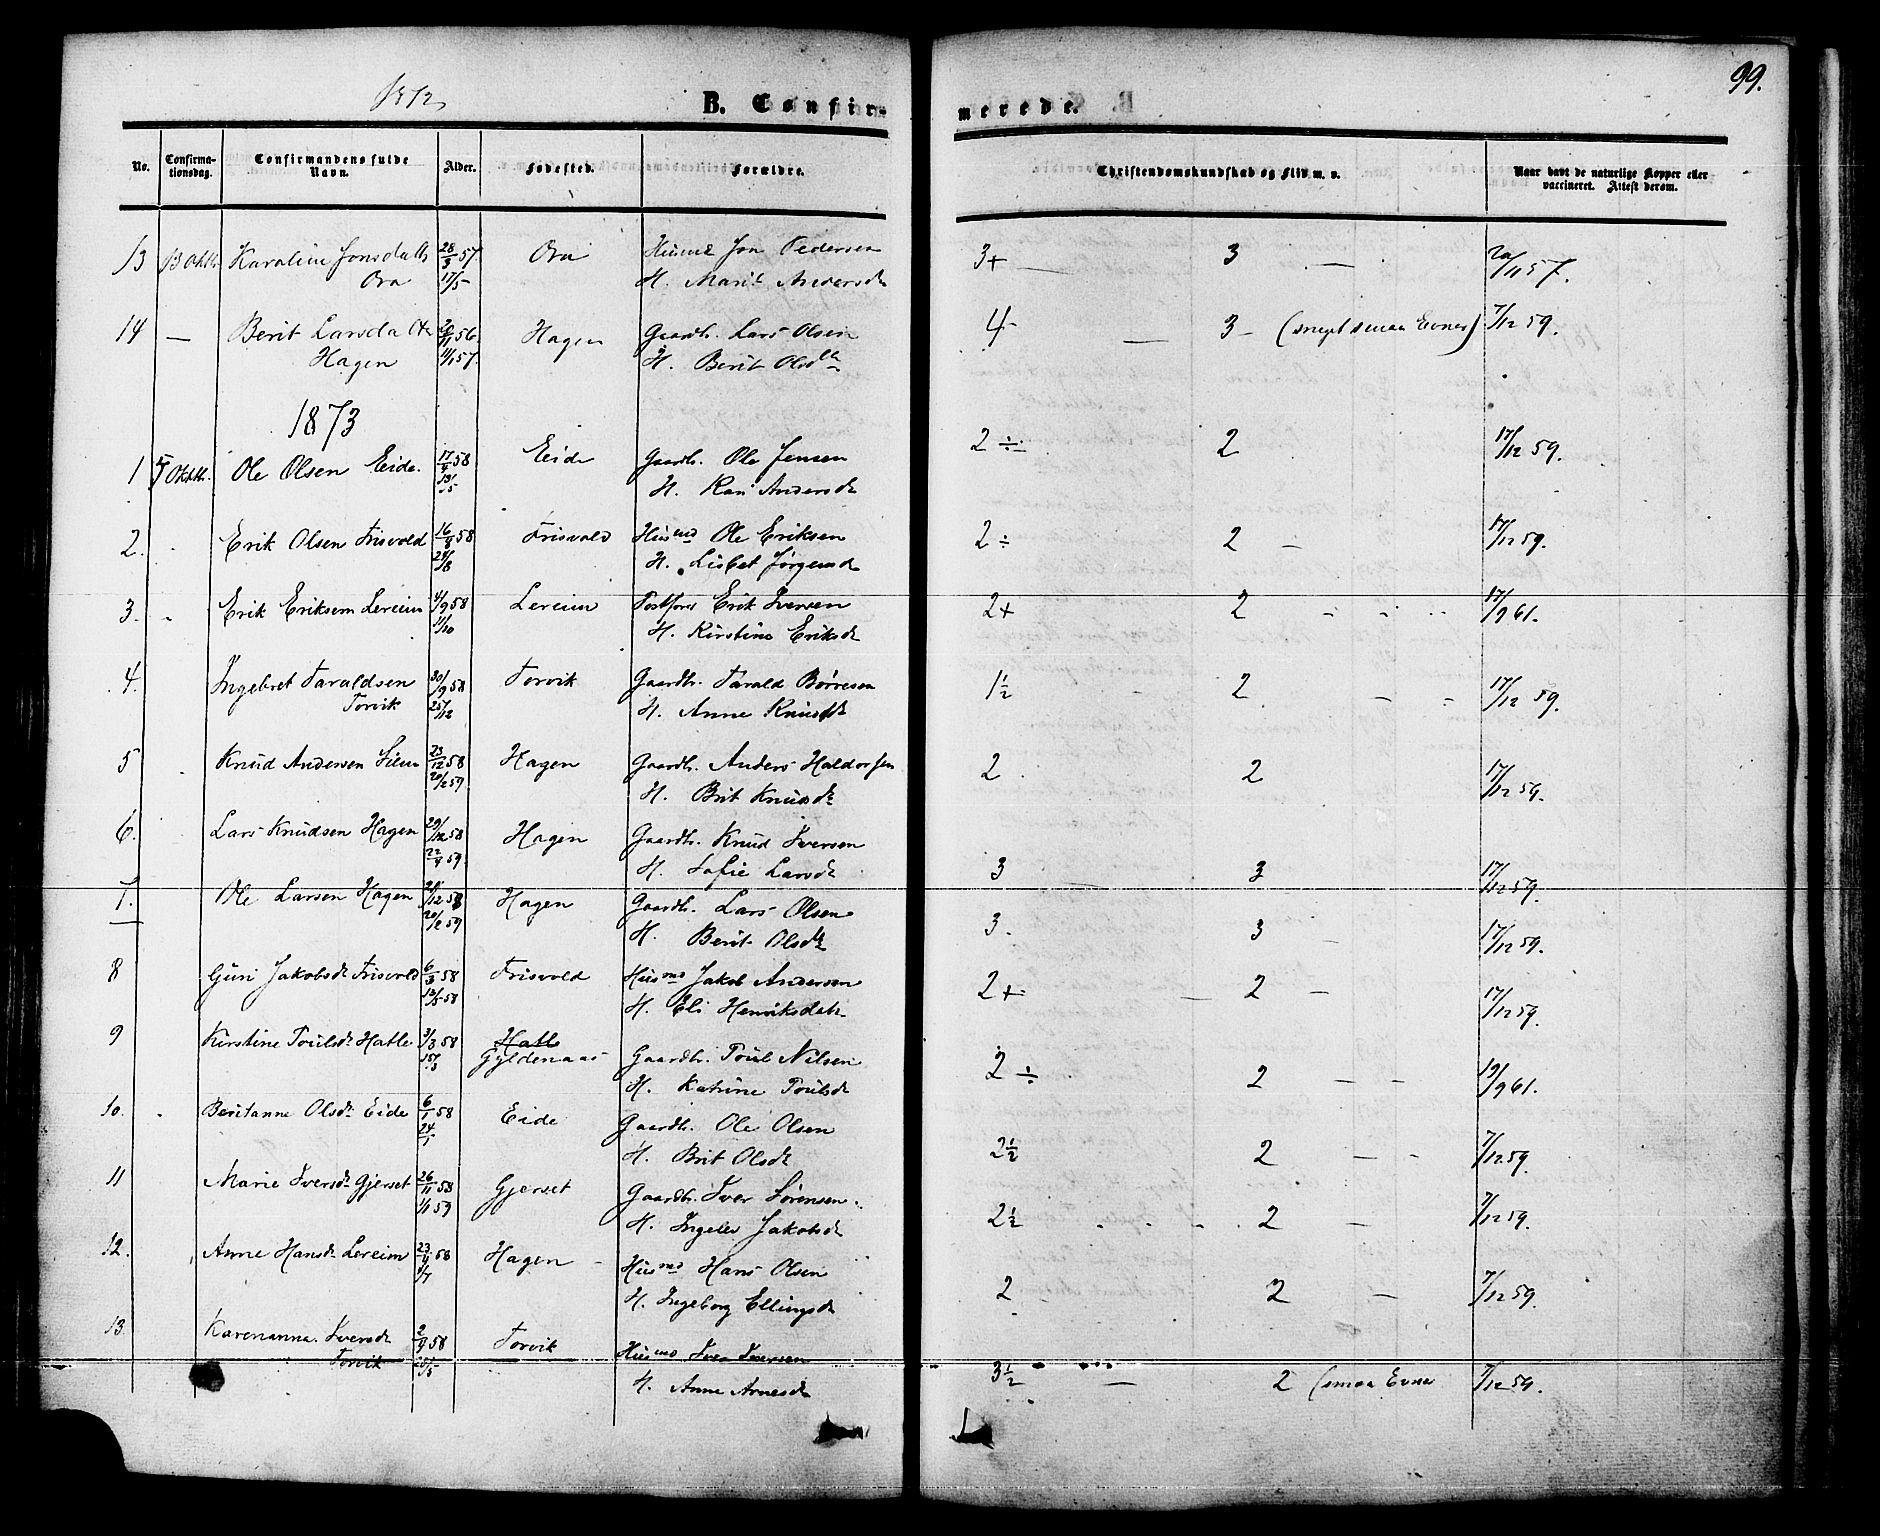 1872
B. Confir-
merede.
99.
No.
Confirma-
tionsdag.
Confirmandens fulde
Navn.
Alder.
Fødested.
Forældre.
Christendomskundskab og Flid m. v.
Naar havt de naturlige Kopper eller
vaccineret. Attest derom.
13 Oktbr. Karolin Jonsdattr 28/3 57. Ora Husmd Jon Pedersen 3+ — 3 — 20/11 57.
Ora 17/5 H. Marit Andersdtr
14 — Berit Larsdattr 20/11 56. Hagen Gaardbr. Lars Olsen 4- — 3 - (meget smaa Evner) 7/12 59.
Hagen 11/1 57. H. Berit Olsdtr
1873
1 5 Oktbr. Ole Olsen Eide. 17/4 58 Eide Gaardbr. Ole Jensen 2 ÷ 2 17/12 59.
13/5 H. Kari Andersdtr
2. Erik Olsen Frisvold 16/8 58 Frisvold Husmd Ole Eriksen 2 ÷ 2 — 17/12 59.
29/8 H. Lisbet Jørgensdtr
3. Erik Eriksen Lereim 4/9 58 Lereim Erik Iversen 2+ 2 17/9 61.
11/10 H. Kirstine Eriksdtr
4. Ingebret Taraldsen 30/9 58 Torvik Gaardbr. Tarald Børresen 1½ 2 17/12 59.
Torvik 25/12 H. Anne Knudsdtr
5 Knud Andersen 23/12 58 Hagen Gaardbr. Anders Haldorsen 2 2 17/12 59.
20/2 59 H. Brit Knudsdtr
6. Lars Knudsen Hagen 29/12 58 Hagen Gaardbr. Knud Iversen 3 3 17/12 59.
22/4 59 H. Sofie Larsdtr
7. Ole Larsen Hagen 12 58 Hagen Gaardbr. Lars Olsen 3. 3 — 17/12 59.
20/2 59 H. Berit Olsdtr
8 Guri Jakobsdtr Frisvold 6/3 58 Frisvold Husmd Jakob Andersen 2+ — 2 — 17/12 59.
13/5 58 H. Eli Henriksdatr
9 Kirstine Poulsdtr Hatle 3/3 58 Hatle
Gyldenaas Gaardbr. Poul Nilsen 2 ÷ 2 — — 19/9 61.
H. Katrine Poulsdtr
10. Beritanne Olsdtr Eide 6/1 58 Eide Gaardbr. Ole Olsen 2½ 2 — — 7/12 59.
24/1 H. Brit Olsdtr
11 Marie Iversdtr Gjerset 26/11 58 Gjerset Gaardbr. Iver Sørensen 2½ 2 — 7/12 59.
1/1 59 H. Ingelev Jakobsdtr
12. Anne Hansdtr Lereim 23/4 58 Hagen Husmd Hans Olsen 2 2 — 7/12 59.
H. Ingeborg Ellingsdtr
13. Karenanna Iversdtr 2/4 58 Torvik Husmd Iver Iversen 3½ — 2 (smaa Evner 7/12 59.
Torvik 25/5 H. Anne Arnesdtr